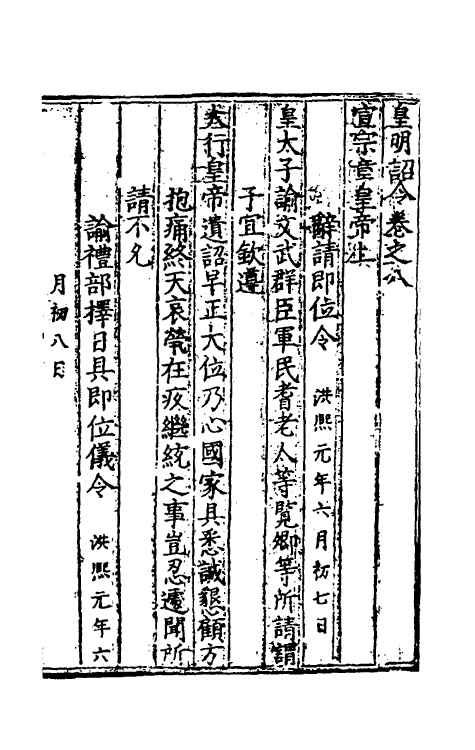 皇明詔令卷之八
宣宗章皇帝上
辭請即位令 洪熙元年六月初七日
皇太子諭文武群臣軍民耆老人等覽卿等所請謂
予宜欽遵
大行皇帝遺詔早正大位乃心國家具悉誠懇顧方
抱痛終天哀煢在疚繼統之事豈忍遽聞所
請不允
諭禮部擇日具即位儀令 洪熙元年六
月初八日